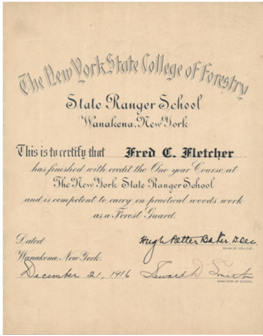 The New York State College of Forestry
State Ranger School
Wanakena, New York
This is to certify that Fred C. Fletcher
has finished with credit the One year Course at
The New York State Ranger School
and is competent to carry on practical woods work
as a Forest Guard.
Dated
Wanakena New York.
December 21, 1916
Hugh Potter Baker